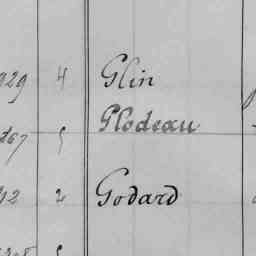 929 4 Glin
267 5 Glodeau
912 2 Godard